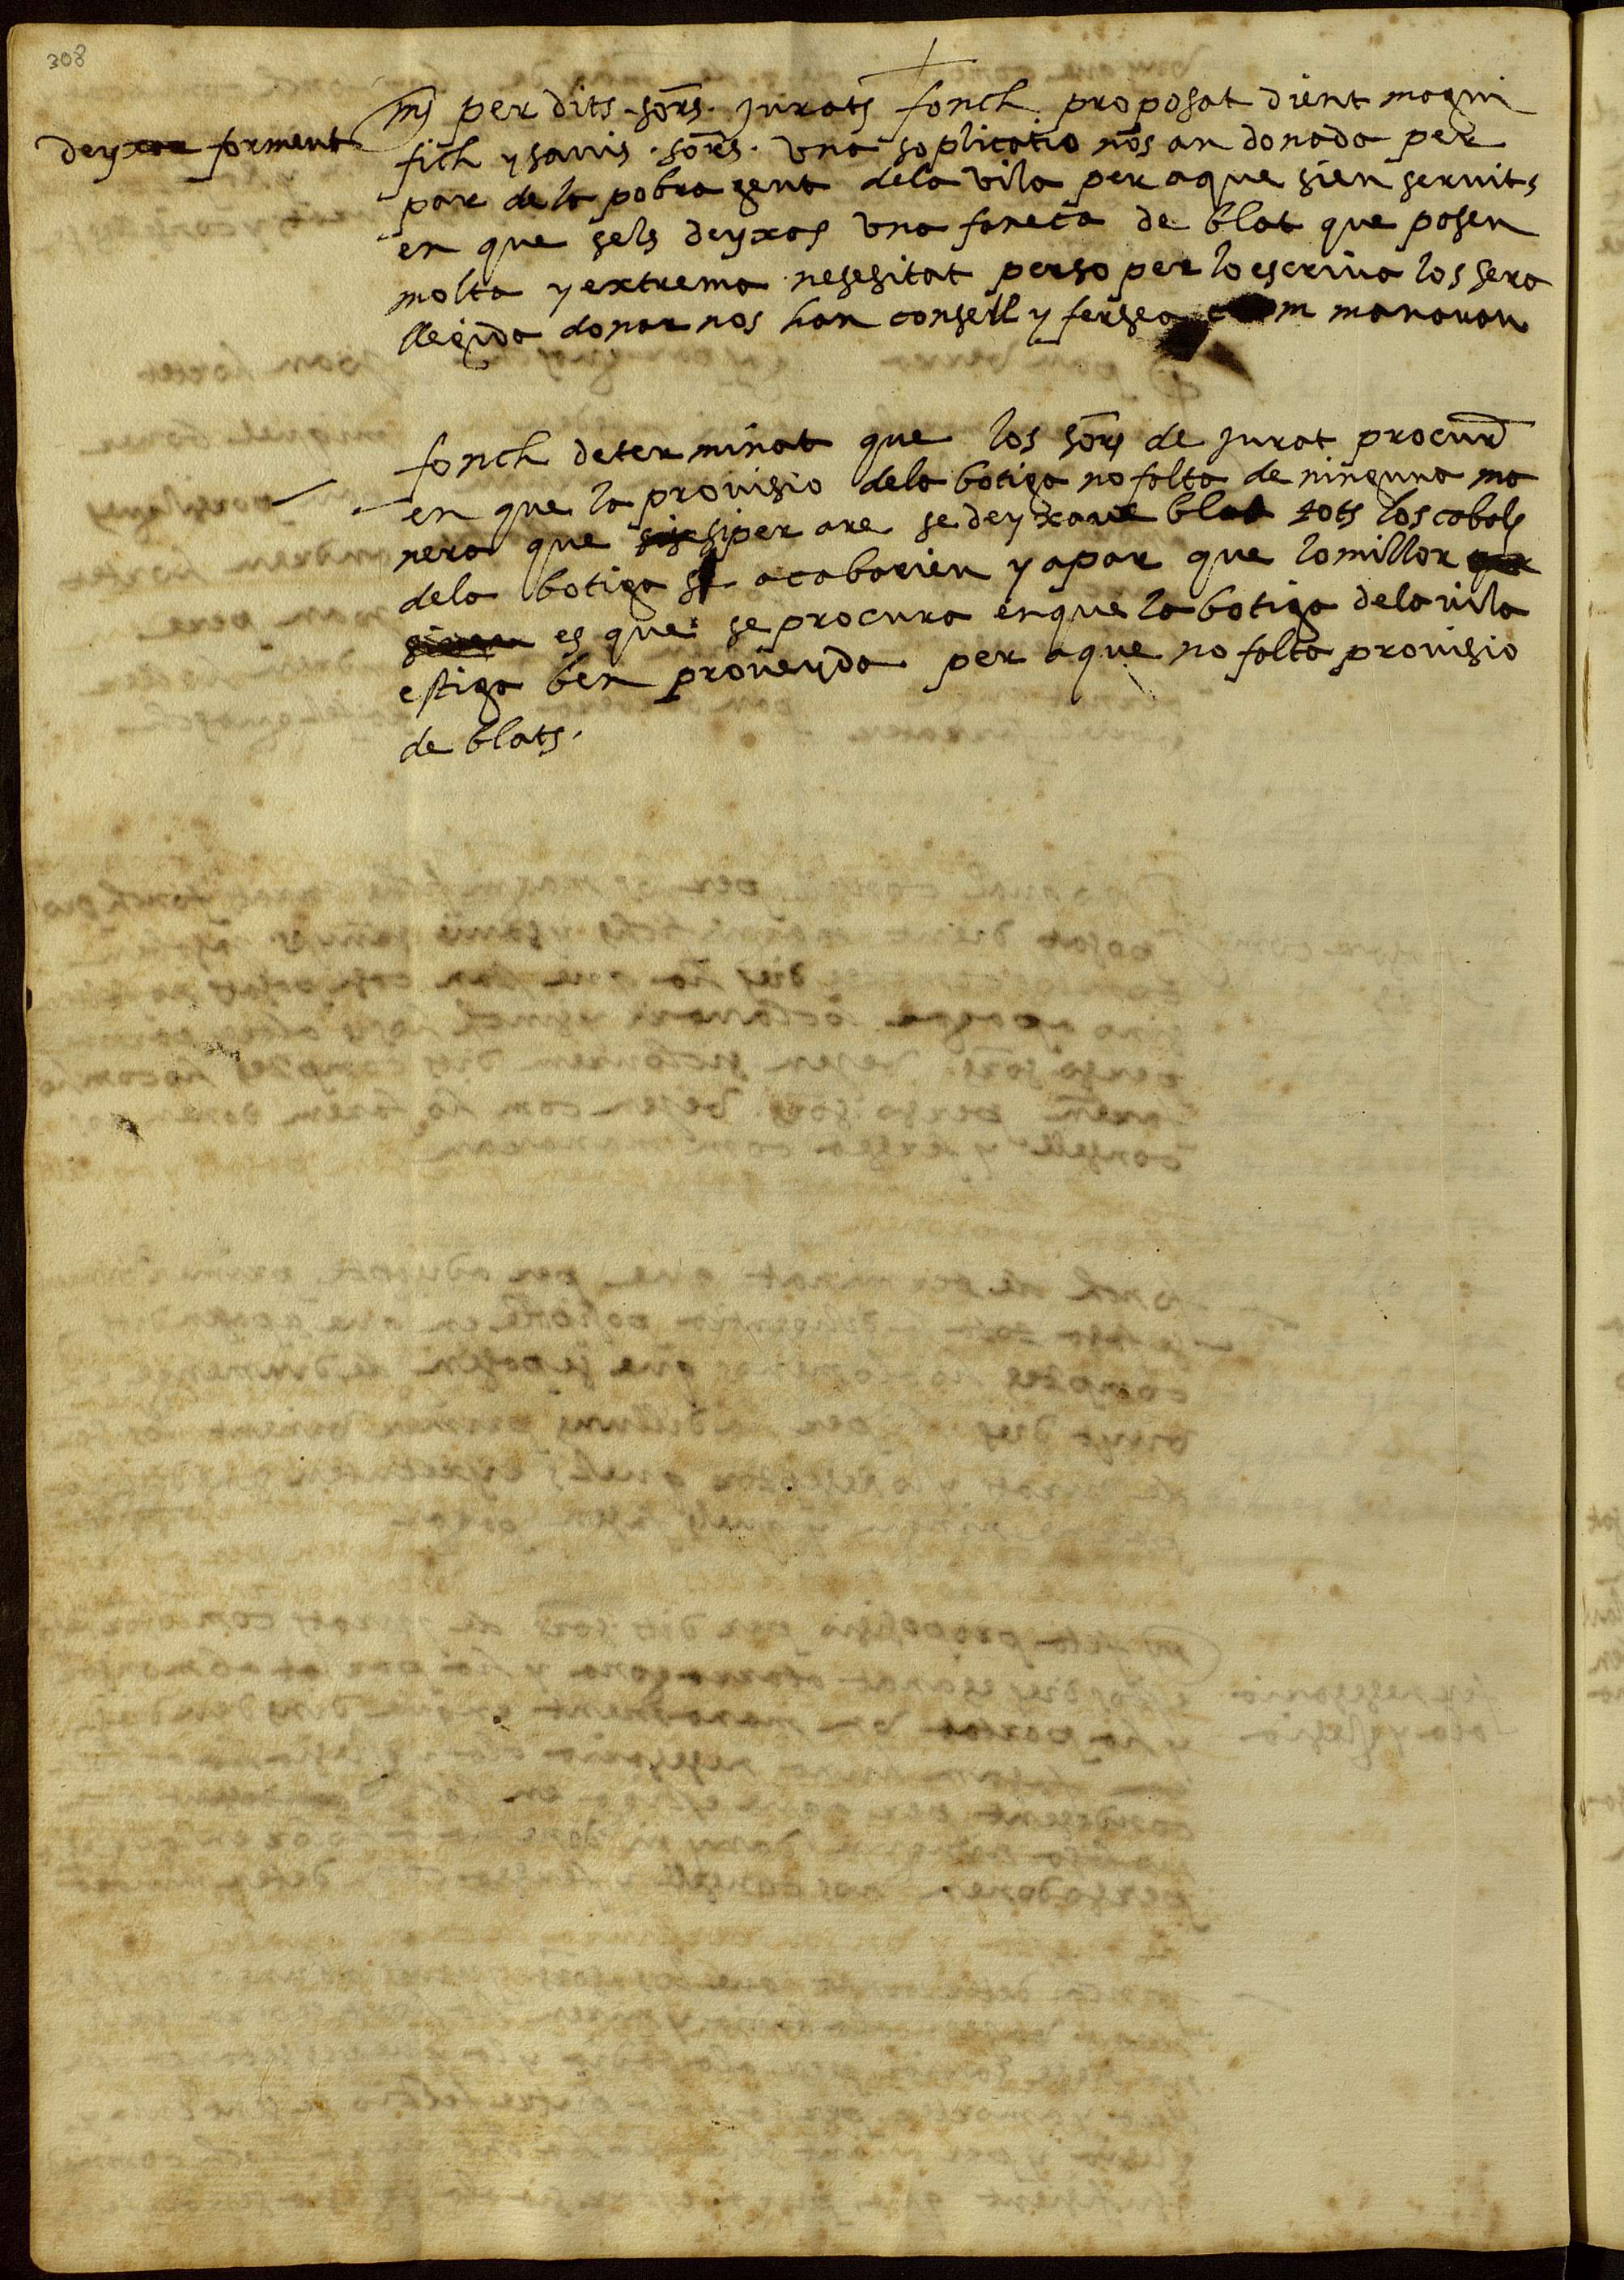 308
deyxar forment
mes per dits sors. jurats fonch proposat dient magni
fich y savis sors. una soplicatio nos an donada per
par de la pobra gent dela vila per aque sien servits
en que sels deyxas una faneca de blat que pasen
molta y extrema nesesitat perso per lo escriva los sera
llegida donar nos han consell y fersea com manaran
fonch determinat que los sors de jurat procurẽ
en que la provisio dela botiga no falta de ninguna ma
nera que si per are se deyxave blat tots los cabals
dela botiga se acabarien y apar que lo millor
es que se procura en que la botiga dela vila
estiga ben proveyda per aque no falta provisio
de blats.